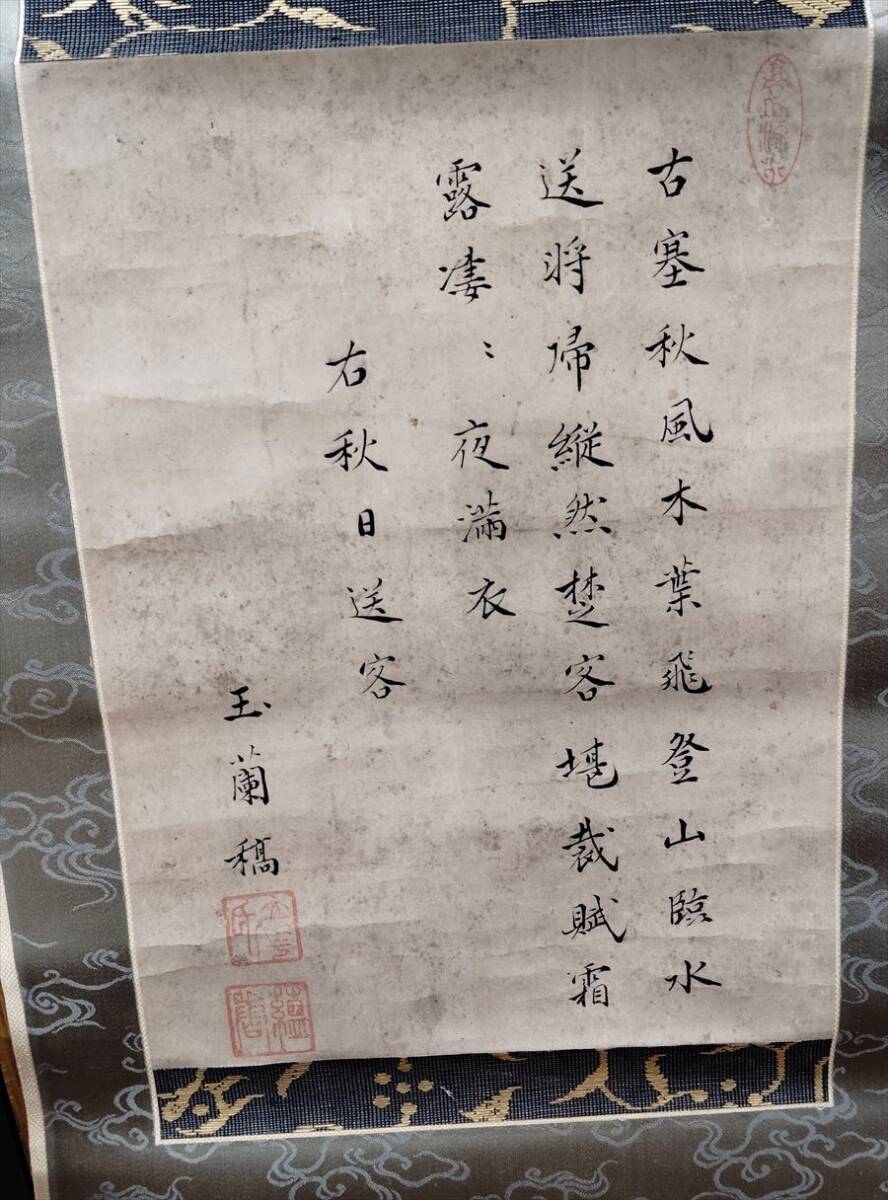 古塞秋風木葉飛登山臨水
送將帰縦然楚客堪裁賦霜
露凄〻夜滿衣
右秋日送客
玉蘭稿